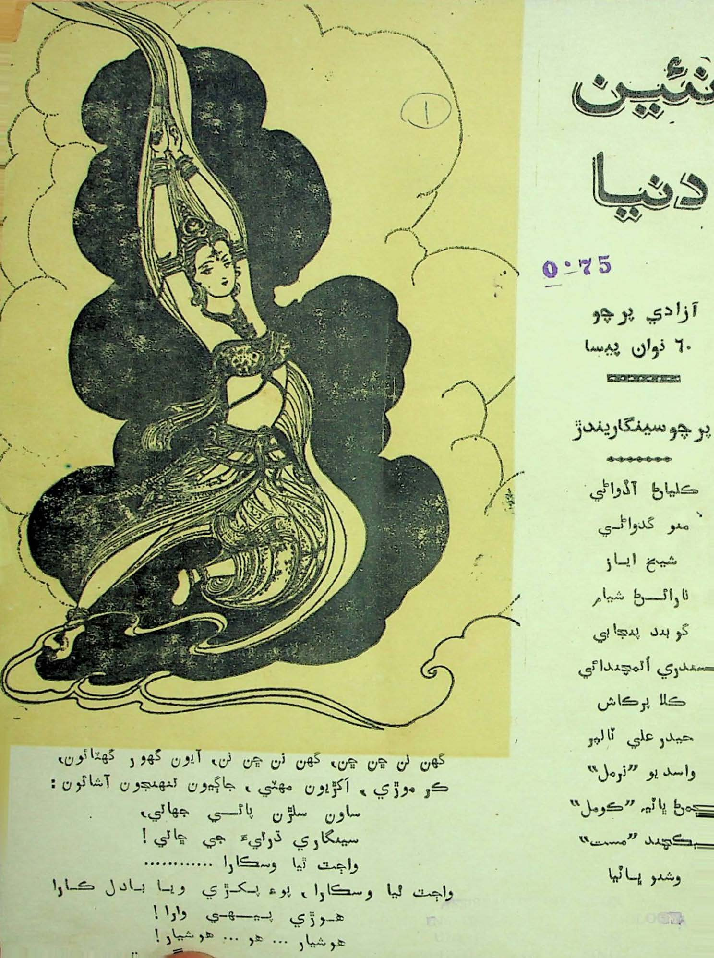 نئين
دنيا
0=75
آزادي پرچو
٦٠ نوان پيسا
پرچو سينگاريندڙ
ڪلياڻ آڏواڻي
گدواڻي
شيخ اياز
نارائڻ شيام
گوبند پنجابي
سندري اُتمچنداڻي
ڪلا پرڪاش
حيدر علي ٽالپر
واسديو ”نرمل“
”ڪومل“
”مست“
وشنو ڀاٽيا
١
گهن نن ڇن ڇن، گهن نن ڇن نن، آيون گهور گهٽائون،
ڪر موڙي، اکڙيون مهٽي، جاڳيون تنهنجون آشائون:
ساون سلڙن پاڻي جهاتي،
سينگاري ڌرتيءَ جي ڇاتي!
واڄٽ ٿيا وسڪارا ............
واڄٽ ٿيا وسڪارا، پوءِ پکڙي ويا بادل ڪارا
هوڙي پيهي وارا!
هوشيار ... هو ... هوشيار!